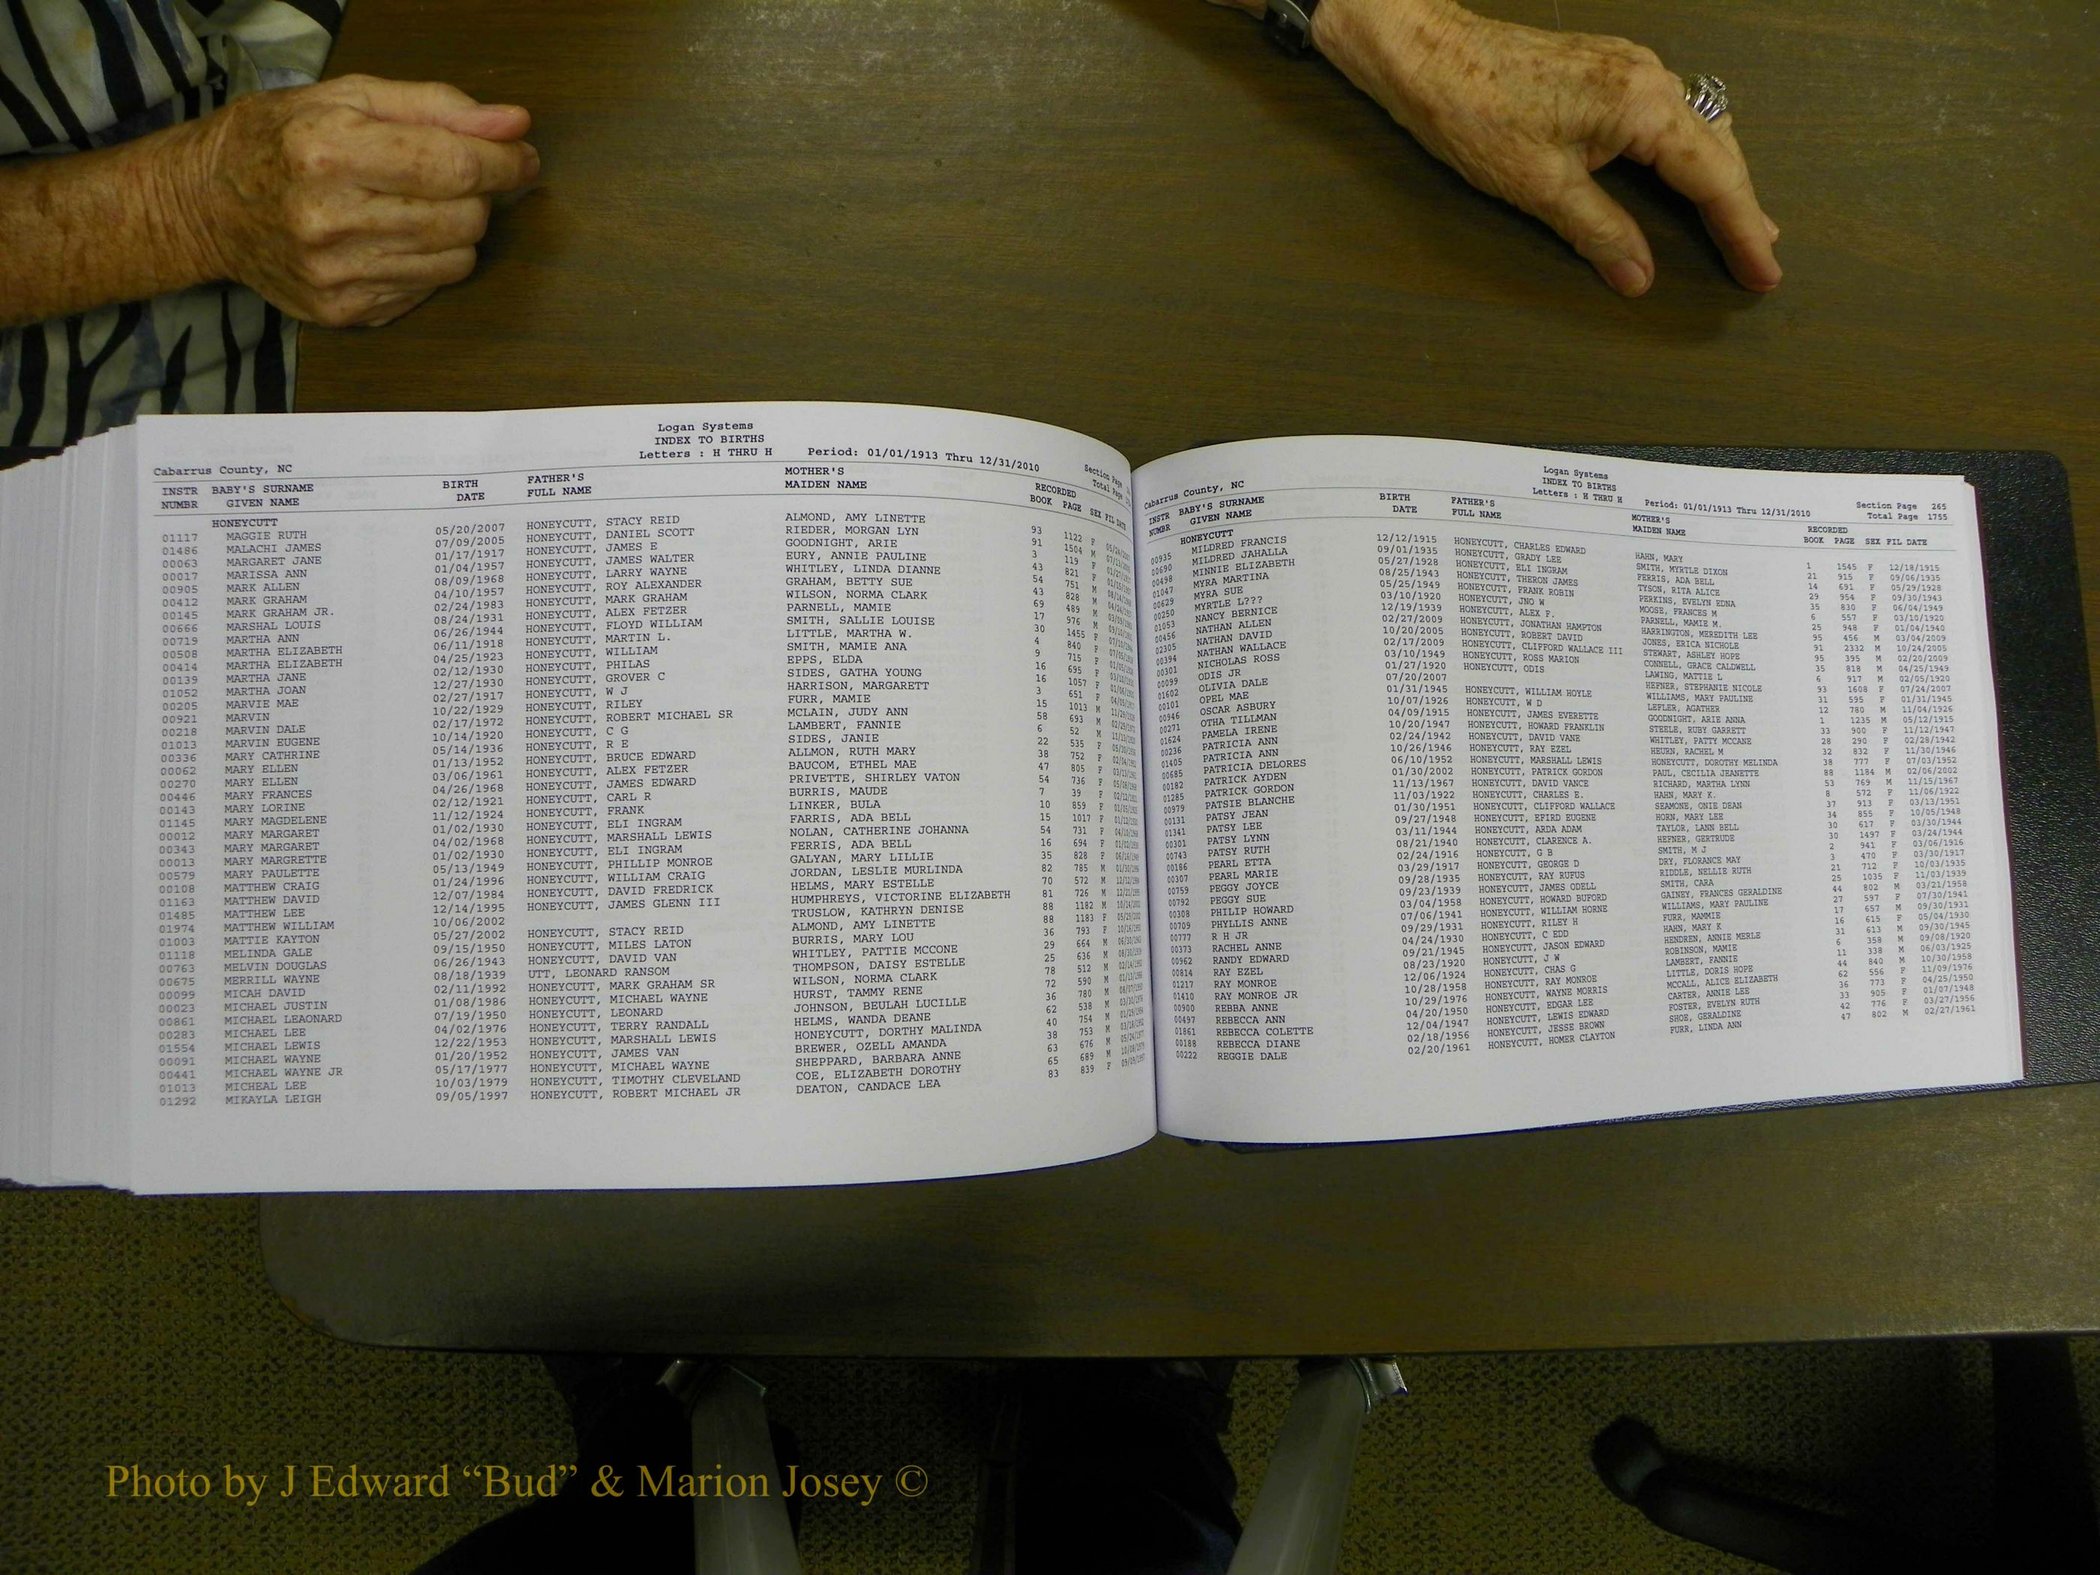 Logan Systems
INDEX TO BIRTHS
Cabarrus County, NC Letters : H THRU H Period: 01/01/1913 Thru 12/31/2010 Section Page
Total Page
INSTR BABY'S SURNAME BIRTH FATHER'S MOTHER'S RECORDED
NUMBR GIVEN NAME DATE FULL NAME MAIDEN NAME BOOK PAGE SEX FIL DATE
HONEYCUTT
01117 MAGGIE RUTH 05/20/2007 HONEYCUTT, STACY REID ALMOND, AMY LINETTE 93 1122 F
01486 MALACHI JAMES 07/09/2005 HONEYCUTT, DANIEL SCOTT RIEDER, MORGAN LYN 91 1504 M
00063 MARGARET JANE 01/17/1917 HONEYCUTT, JAMES E GOODNIGHT, ARIE 3 119 F
00017 MARISSA ANN 01/04/1957 HONEYCUTT, JAMES WALTER EURY, ANNIE PAULINE 43 821 F
00905 MARK ALLEN 08/09/1968 HONEYCUTT, LARRY WAYNE WHITLEY, LINDA DIANNE 54 751 M
00412 MARK GRAHAM 04/10/1957 HONEYCUTT, ROY ALEXANDER GRAHAM, BETTY SUE 43 828 M
00145 MARK GRAHAM JR. 02/24/1983 HONEYCUTT, MARK GRAHAM WILSON, NORMA CLARK 69 489 M
00666 MARSHAL LOUIS 08/24/1931 HONEYCUTT, ALEX FETZER PARNELL, MAMIE 17 976 M
00719 MARTHA ANN 06/26/1944 HONEYCUTT, FLOYD WILLIAM SMITH, SALLIE LOUISE 30 1455 F
00508 MARTHA ELIZABETH 06/11/1918 HONEYCUTT, MARTIN L. LITTLE, MARTHA W. 4 840 F
00414 MARTHA ELIZABETH 04/25/1923 HONEYCUTT, WILLIAM SMITH, MAMIE ANA 9 715 F
00139 MARTHA JANE 02/12/1930 HONEYCUTT, PHILAS EPPS, ELDA 16 695 F
01052 MARTHA JOAN 12/27/1930 HONEYCUTT, GROVER C SIDES, GATHA YOUNG 16 1057 F
00205 MARVIE MAE 02/27/1917 HONEYCUTT, W J HARRISON, MARGARETT 3 651 F
00921 MARVIN 10/22/1929 HONEYCUTT, RILEY FURR, MAMIE 15 1013 M
00218 MARVIN DALE 02/17/1972 HONEYCUTT, ROBERT MICHAEL SR MCLAIN, JUDY ANN 58 693 M
01013 MARVIN EUGENE 10/14/1920 HONEYCUTT, C G LAMBERT, FANNIE 6 52 M
00336 MARY CATHRINE 05/14/1936 HONEYCUTT, R E SIDES, JANIE 22 535 F
00062 MARY ELLEN 01/13/1952 HONEYCUTT, BRUCE EDWARD ALLMON, RUTH MARY 38 752 F
00270 MARY ELLEN 03/06/1961 HONEYCUTT, ALEX FETZER BAUCOM, ETHEL MAE 47 805 F
00446 MARY FRANCES 04/26/1968 HONEYCUTT, JAMES EDWARD PRIVETTE, SHIRLEY VATON 54 736 F
00143 MARY LORINE 02/12/1921 HONEYCUTT, CARL R BURRIS, MAUDE 7 39 F
01145 MARY MAGDELENE 11/12/1924 HONEYCUTT, FRANK LINKER, BULA 10 859 F
00012 MARY MARGARET 01/02/1930 HONEYCUTT, ELI INGRAM FARRIS, ADA BELL 15 1017 F
00343 MARY MARGARET 04/02/1968 HONEYCUTT, MARSHALL LEWIS NOLAN, CATHERINE JOHANNA 54 731 F
00013 MARY MARGRETTE 01/02/1930 HONEYCUTT, ELI INGRAM FERRIS, ADA BELL 16 694 F
00579 MARY PAULETTE 05/13/1949 HONEYCUTT, PHILLIP MONROE GALYAN, MARY LILLIE 35 828 F
00108 MATTHEW CRAIG 01/24/1996 HONEYCUTT, WILLIAM CRAIG JORDAN, LESLIE MURLINDA 82 785 M
01163 MATTHEW DAVID 12/07/1984 HONEYCUTT, DAVID FREDRICK HELMS, MARY ESTELLE 70 572 M
01485 MATTHEW LEE 12/14/1995 HONEYCUTT, JAMES GLENN III HUMPHREYS, VICTORINE ELIZABETH 81 726 M
01974 MATTHEW WILLIAM 10/06/2002 TRUSLOW, KATHRYN DENISE 88 1182 M
01003 MATTIE KAYTON 05/27/2002 HONEYCUTT, STACY REID ALMOND, AMY LINETTE 88 1183 F
01118 MELINDA GALE 09/15/1950 HONEYCUTT, MILES LATON BURRIS, MARY LOU 36 793 F
00763 MELVIN DOUGLAS 06/26/1943 HONEYCUTT, DAVID VAN WHITLEY, PATTIE MCCONE 29 664 M
00675 MERRILL WAYNE 08/18/1939 UTT, LEONARD RANSOM THOMPSON, DAISY ESTELLE 25 636 M
00099 MICAH DAVID 02/11/1992 HONEYCUTT, MARK GRAHAM SR WILSON, NORMA CLARK 78 512 M
00023 MICHAEL JUSTIN 01/08/1986 HONEYCUTT, MICHAEL WAYNE HURST, TAMMY RENE 72 590 M
00861 MICHAEL LEAONARD 07/19/1950 HONEYCUTT, LEONARD JOHNSON, BEULAH LUCILLE 36 780 M
00283 MICHAEL LEE 04/02/1976 HONEYCUTT, TERRY RANDALL HELMS, WANDA DEANE 62 538 M
01554 MICHAEL LEWIS 12/22/1953 HONEYCUTT, MARSHALL LEWIS HONEYCUTT, DORTHY MALINDA 40 754 M
00091 MICHAEL WAYNE 01/20/1952 HONEYCUTT, JAMES VAN BREWER, OZELL AMANDA 38 753 M
00441 MICHAEL WAYNE JR 05/17/1977 HONEYCUTT, MICHAEL WAYNE SHEPPARD, BARBARA ANNE 63 676 M
01013 MICHEAL LEE 10/03/1979 HONEYCUTT, TIMOTHY CLEVELAND COE, ELIZABETH DOROTHY 65 689 M
01292 MIKAYLA LEIGH 09/05/1997 HONEYCUTT, ROBERT MICHAEL JR DEATON, CANDACE LEA 83 839 F
Logan Systems
INDEX TO BIRTHS
Cabarrus County, NC Letters : H THRU H Period: 01/01/1913 Thru 12/31/2010 Section Page 265
Total Page 1755
INSTR BABY'S SURNAME BIRTH FATHER'S MOTHER'S RECORDED
NUMBR GIVEN NAME DATE FULL NAME MAIDEN NAME BOOK PAGE SEX FIL DATE
HONEYCUTT
00935 MILDRED FRANCIS 12/12/1915 HONEYCUTT, CHARLES EDWARD HAHN, MARY 1 1545 F 12/18/1915
00690 MILDRED JAHALLA 09/01/1935 HONEYCUTT, GRADY LEE SMITH, MYRTLE DIXON 21 915 F 09/06/1935
00498 MINNIE ELIZABETH 05/27/1928 HONEYCUTT, ELI INGRAM FERRIS, ADA BELL 14 691 F 05/29/1928
01047 MYRA MARTINA 08/25/1943 HONEYCUTT, THERON JAMES TYSON, RITA ALICE 29 954 F 09/30/1943
00629 MYRA SUE 05/25/1949 HONEYCUTT, FRANK ROBIN PERKINS, EVELYN EDNA 35 830 F 06/04/1949
00250 MYRTLE L??? 03/10/1920 HONEYCUTT, JNO W MOOSE, FRANCES M 6 557 F 03/10/1920
01053 NANCY BERNICE 12/19/1939 HONEYCUTT, ALEX F. PARNELL, MAMIE M. 25 948 F 01/04/1940
00456 NATHAN ALLEN 02/27/2009 HONEYCUTT, JONATHAN HAMPTON HARRINGTON, MEREDITH LEE 95 456 M 03/04/2009
02305 NATHAN DAVID 10/20/2005 HONEYCUTT, ROBERT DAVID JONES, ERICA NICHOLE 91 2332 M 10/24/2005
00394 NATHAN WALLACE 02/17/2009 HONEYCUTT, CLIFFORD WALLACE III STEWART, ASHLEY HOPE 95 395 M 02/20/2009
00301 NICHOLAS ROSS 03/10/1949 HONEYCUTT, ROSS MARION CONNELL, GRACE CALDWELL 35 818 M 04/25/1949
00099 ODIS JR 01/27/1920 HONEYCUTT, ODIS LAWING, MATTIE L 6 917 M 02/05/1920
01602 OLIVIA DALE 07/20/2007 HEFNER, STEPHANIE NICOLE 93 1608 F 07/24/2007
00101 OPEL MAE 01/31/1945 HONEYCUTT, WILLIAM HOYLE WILLIAMS, MARY PAULINE 31 595 F 01/31/1945
00946 OSCAR ASBURY 10/07/1926 HONEYCUTT, W D LEFLER, AGATHER 12 780 M 11/04/1926
00271 OTHA TILLMAN 04/09/1915 HONEYCUTT, JAMES EVERETTE GOODNIGHT, ARIE ANNA 1 1235 M 05/12/1915
01624 PAMELA IRENE 10/20/1947 HONEYCUTT, HOWARD FRANKLIN STEELE, RUBY GARRETT 33 900 F 11/12/1947
00236 PATRICIA ANN 02/24/1942 HONEYCUTT, DAVID VANE WHITLEY, PATTY MCCANE 28 290 F 02/28/1942
01405 PATRICIA ANN 10/26/1946 HONEYCUTT, RAY EZEL HEURN, RACHEL M 32 832 F 11/30/1946
00685 PATRICIA DELORES 06/10/1952 HONEYCUTT, MARSHALL LEWIS HONEYCUTT, DOROTHY MELINDA 38 777 F 07/03/1952
00182 PATRICK AYDEN 01/30/2002 HONEYCUTT, PATRICK GORDON PAUL, CECILIA JEANETTE 88 1184 M 02/06/2002
01285 PATRICK GORDON 11/13/1967 HONEYCUTT, DAVID VANCE RICHARD, MARTHA LYNN 53 769 M 11/15/1967
00979 PATSIE BLANCHE 11/03/1922 HONEYCUTT, CHARLES E. HAHN, MARY K. 8 572 F 11/06/1922
00131 PATSY JEAN 01/30/1951 HONEYCUTT, CLIFFORD WALLACE SEAMONE, ONIE DEAN 37 913 F 03/13/1951
01341 PATSY LEE 09/27/1948 HONEYCUTT, EFIRD EUGENE HORN, MARY LEE 34 855 F 10/05/1948
00301 PATSY LYNN 03/11/1944 HONEYCUTT, ARDA ADAM TAYLOR, LANN BELL 30 617 F 03/30/1944
00743 PATSY RUTH 08/21/1940 HONEYCUTT, CLARENCE A. HEFNER, GERTRUDE 30 1497 F 03/24/1944
00186 PEARL ETTA 02/24/1916 HONEYCUTT, G B SMITH, M J 2 941 F 03/06/1916
00307 PEARL MARIE 03/29/1917 HONEYCUTT, GEORGE D DRY, FLORANCE MAY 3 470 F 03/30/1917
00759 PEGGY JOYCE 09/28/1935 HONEYCUTT, RAY RUFUS RIDDLE, NELLIE RUTH 21 712 F 10/03/1935
00792 PEGGY SUE 09/23/1939 HONEYCUTT, JAMES ODELL SMITH, CARA 25 1035 F 11/03/1939
00308 PHILIP HOWARD 03/04/1958 HONEYCUTT, HOWARD BUFORD GAINEY, FRANCES GERALDINE 44 802 M 03/21/1958
00709 PHYLLIS ANNE 07/06/1941 HONEYCUTT, WILLIAM HORNE WILLIAMS, MARY PAULINE 27 597 F 07/30/1941
00777 R H JR 09/29/1931 HONEYCUTT, RILEY H FURR, MAMMIE 17 657 M 09/30/1931
00373 RACHEL ANNE 04/24/1930 HONEYCUTT, C EDD HAHN, MARY K 16 615 F 05/04/1930
00962 RANDY EDWARD 09/21/1945 HONEYCUTT, JASON EDWARD HENDREN, ANNIE MERLE 31 613 M 09/30/1945
00814 RAY EZEL 08/23/1920 HONEYCUTT, J W ROBINSON, MAMIE 6 358 M 09/08/1920
01217 RAY MONROE 12/06/1924 HONEYCUTT, CHAS G LAMBERT, FANNIE 11 338 M 06/03/1925
01410 RAY MONROE JR 10/28/1958 HONEYCUTT, RAY MONROE LITTLE, DORIS HOPE 44 840 M 10/30/1958
00900 REBBA ANNE 10/29/1976 HONEYCUTT, WAYNE MORRIS MCCALL, ALICE ELIZABETH 62 556 F 11/09/1976
00497 REBECCA ANN 04/20/1950 HONEYCUTT, EDGAR LEE CARTER, ANNIE LEE 36 773 F 04/25/1950
01861 REBECCA COLETTE 12/04/1947 HONEYCUTT, LEWIS EDWARD FOSTER, EVELYN RUTH 33 905 F 01/07/1948
00188 REBECCA DIANE 02/18/1956 HONEYCUTT, JESSE BROWN SHOE, GERALDINE 42 776 F 03/27/1956
00222 REGGIE DALE 02/20/1961 HONEYCUTT, HOMER CLAYTON FURR, LINDA ANN 47 802 M 02/27/1961
Photo by J Edward “Bud” & Marion Josey ©